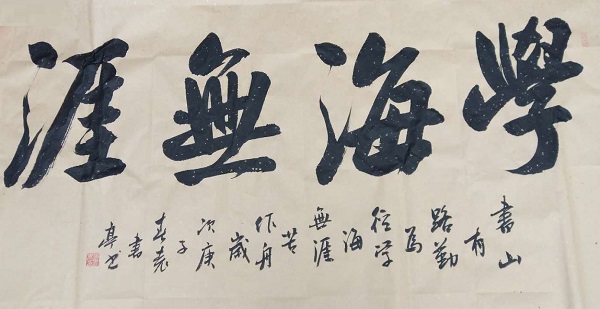 學海無涯
書山
有
路勤
為
徑学
海
無涯
苦
作舟
歲
次庚
子
春袁
書